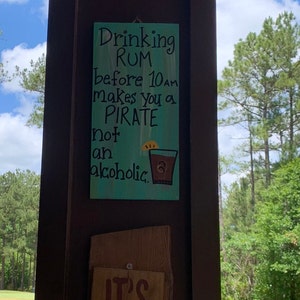 Drinking
RUM
before 10 AM
makes you a
PIRATE
not
an
alcoholic.
IT'S